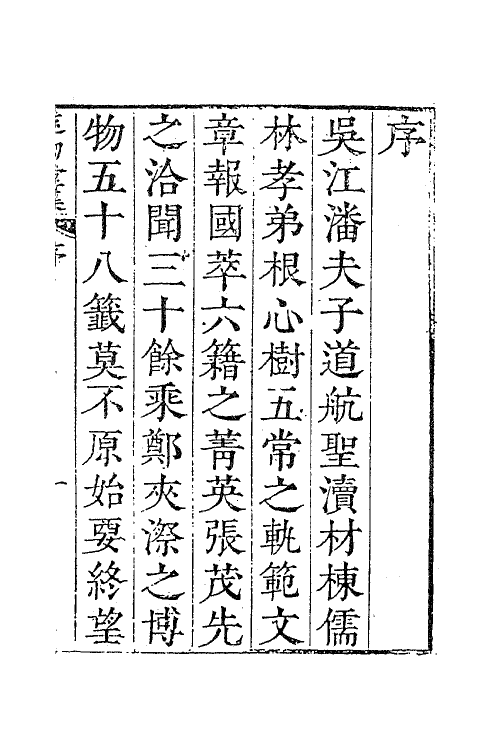 序
吳江潘夫子道航聖瀆材棟儒
林孝弟根心樹五常之軌範文
章報國萃六籍之菁英張茂先
之洽聞三十餘乘鄭夾漈之博
物五十八籤莫不原始要終望
序
一